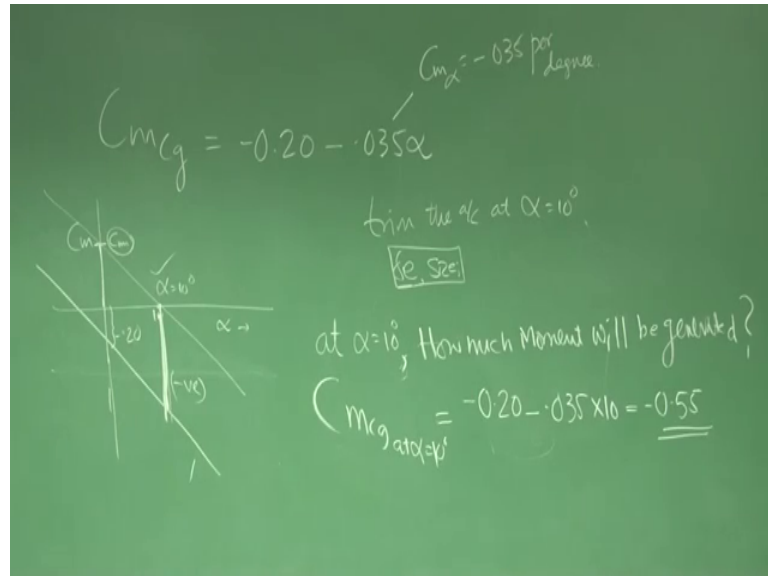 Cmα = -.035 per degree
Cmcg = -0.20 - .035α
trim the a/c at α=10°
Cm Cm
α=10°
-.20
α →
(-ve)
at α=10°, How much Moment will be generated?
Cmcg at α=10° = -0.20 - .035×10 = -0.55